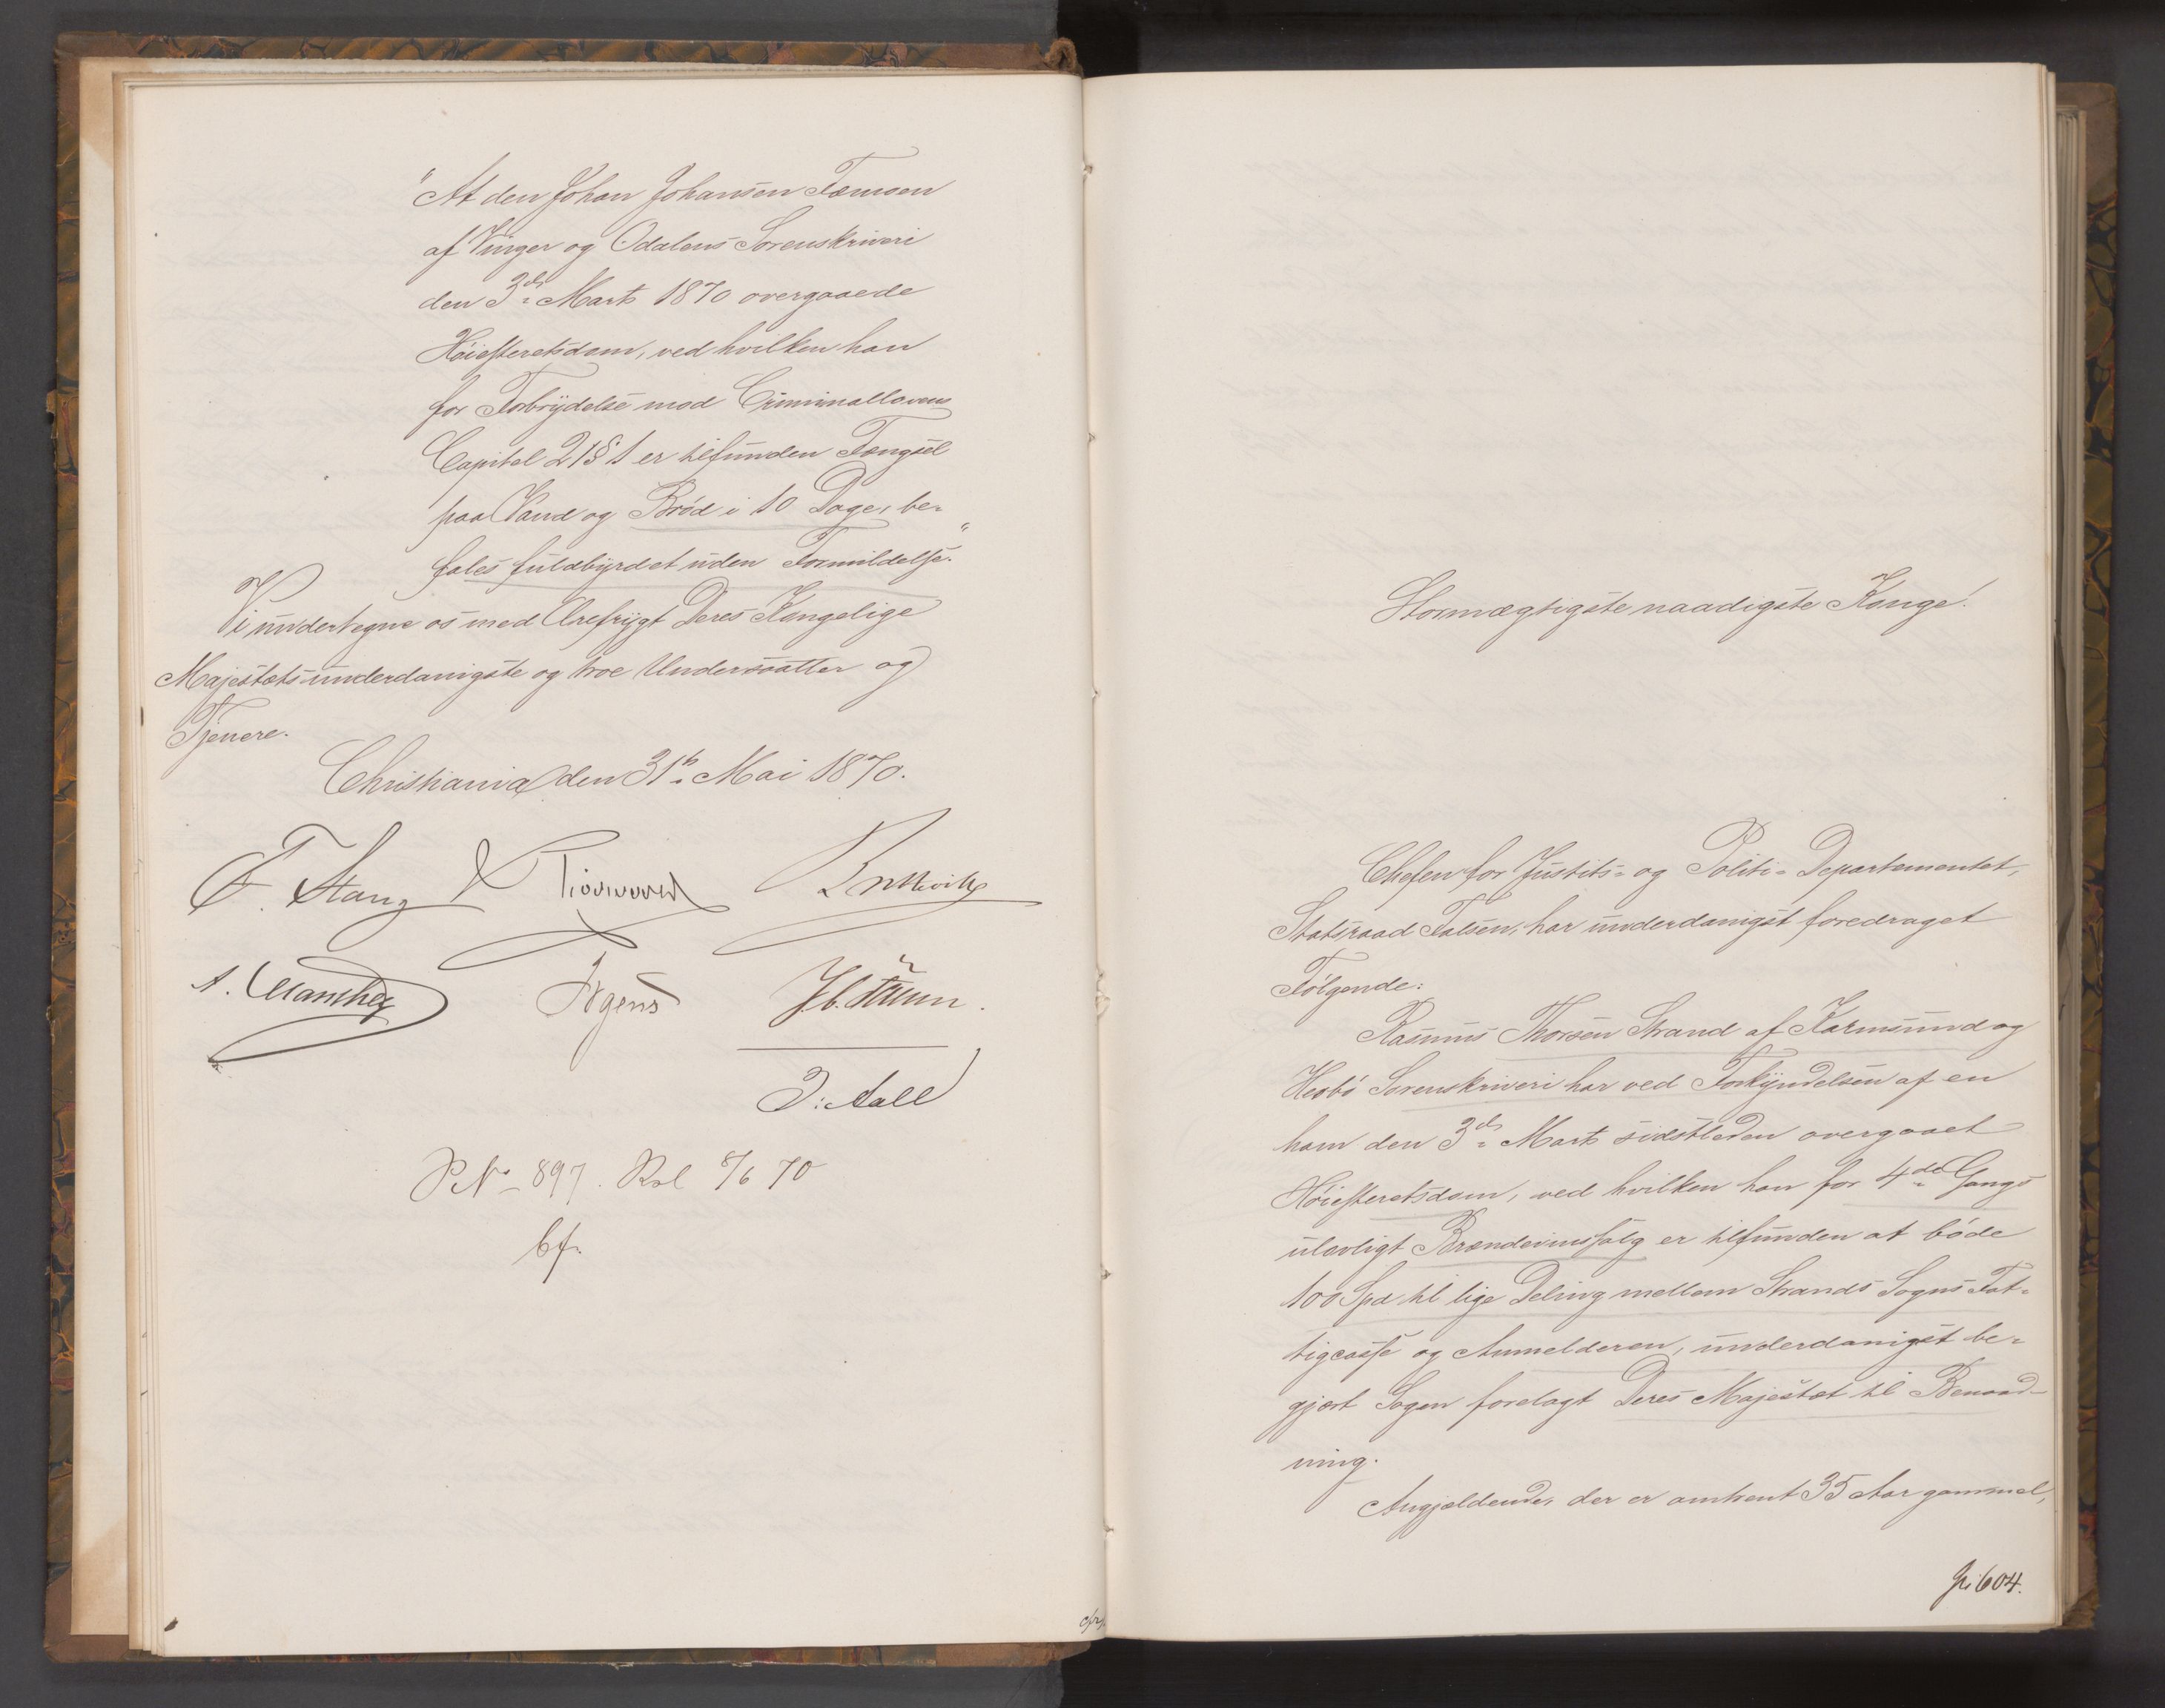 "At den Johan Johansen
af Vinger og Odalens Sorenskriveri
den 3die Marts 1870 overgaaede
Høiesteretsdom, ved hvilken han
for Forbrydelse mod Criminallovens
Capitel 21 § 1 er tilfunden Fængsel
paa Vand og Brød i 10 Dage, be-
fales fuldbyrdet uden Formildelse."
Vi undertegne os med Ærefrygt Deres Kongelige
Majestæts underdanigste og troe Undersaatter og
Tjenere.
Christiania den 31te Mai 1870.
F. Stang
A. Manthey Irgens
J. Aall
P No 897. Rsl 8/6 70
bf.
Stormægtigste naadigste Konge!
Chefen for Justits- og Politi-Departementet,
Statsraad Falsen, har underdanigst foredraget
Følgende:
Rasmus Thorsen Strand af Karmsund og
Hesbø Sorenskriveri har ved Forkyndelsen af en
ham den 3die Marts sidstleden overgaaet
Høiesteretsdom, ved hvilken han for 4de Gangs
ulovligt Brændeviinssalg er tilfunden at bøde
100 Spd til lige Deling mellem Strands Sogns Fat-
tigcasse og Anmelderen, underdanigst be-
gjært Sagen forelagt Deres Majestæt til Benaad-
ning.
Angjældende, der er omtrent 35 Aar gammel,
604.